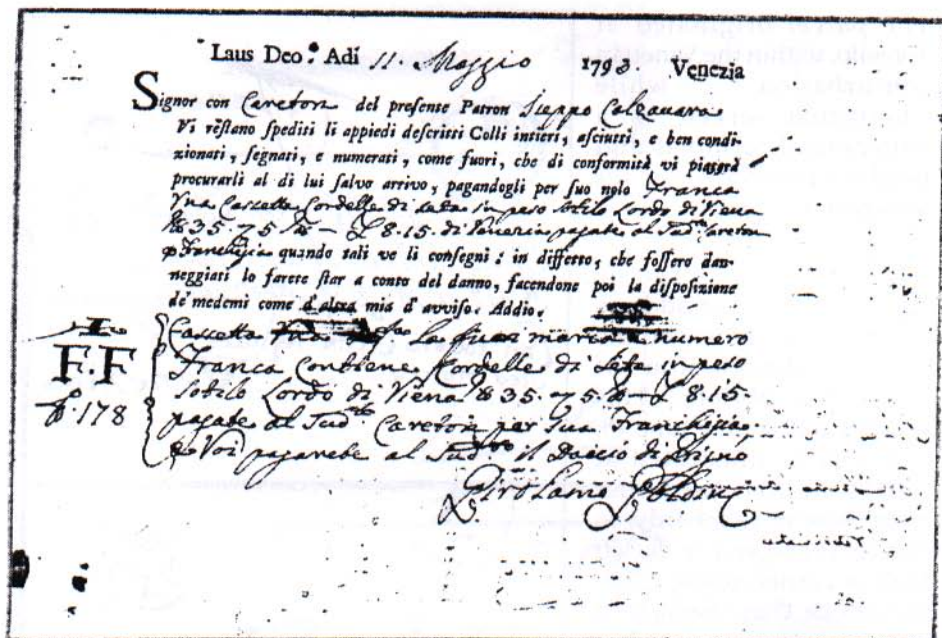 Laus Deo. Adí 11. Maggio 1793. Venezia
Signor con Careton del presente Patron Calzavara
Vi restano spediti li appiedi descritti Colli intieri, asciutti, e ben condi-
zionati, segnati, e numerati, come fuori, che di conformità vi piacerà
procurarli al di lui salvo arrivo, pagandogli per suo nolo Franca
Una Cassetta Cordelle di Seta in peso sotilo Lordo di Viena
35. 75 — £ 8.15. di pagate al Sud. Careton
Franchigia quando tali ve li consegni: in diffetto, che fossero dan-
neggiati lo farete star a conto del danno, facendone poi la disposizione
de' medemi come d'altra mia d'avviso. Addio.
Cassetta Una La fuori marca e numero
Franca Contiene Cordelle di Seta in peso
sotilo Lordo di Viena 35. 75. — £ 8.15.
pagate al Sud. Careton per sua Franchigia
e Voi pagarete al Sud. il Dacio di
Girolamo
I
F.F
N.º 178